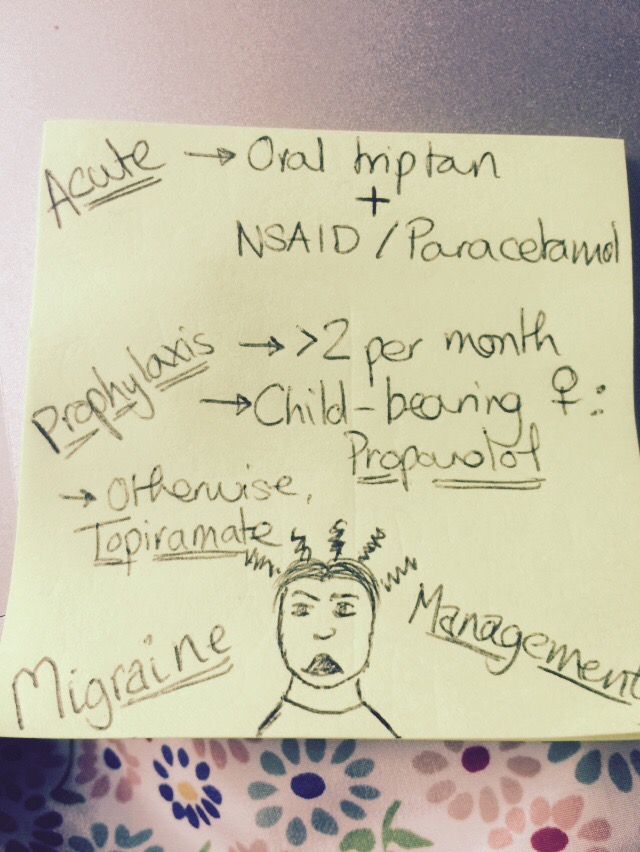 Acute → Oral triptan
+
NSAID / Paracetamol
Prophylaxis → >2 per month
→ Child-bearing ♀:
Propanolol
→ Otherwise,
Topiramate
Migraine Management